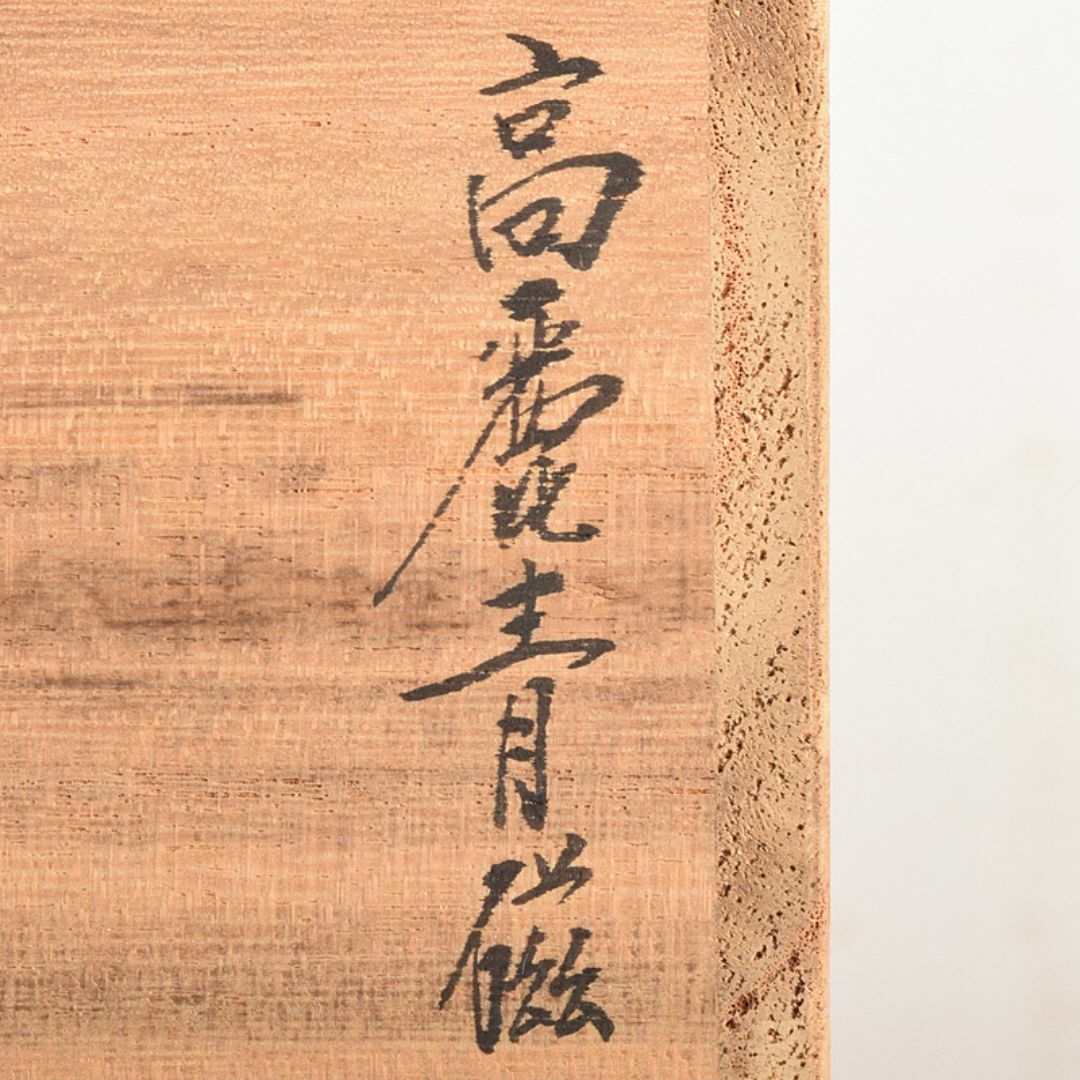 高麗青磁